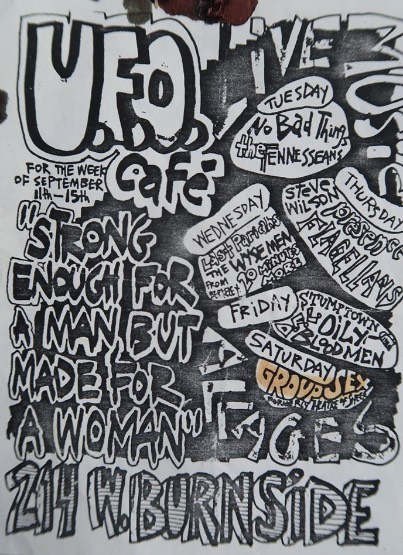 U.F.O.
Café
LIVE
MUSIC
FOR THE WEEK
OF SEPTEMBER
11th - 15th
"STRONG
ENOUGH FOR
A MAN, BUT
MADE FOR
A WOMAN"
TUESDAY
No Bad Things
the TENNESSEANS
WEDNESDAY
THE WYSE MEN
FROM
90 MINUTES
MORE
THURSDAY
STEVE
WILSON
FLAGELLANTS
FRIDAY
STUMPTOWN
OILY
BLOODMEN
SATURDAY
GROUP SEX
ALL
AGES
214 W. BURNSIDE